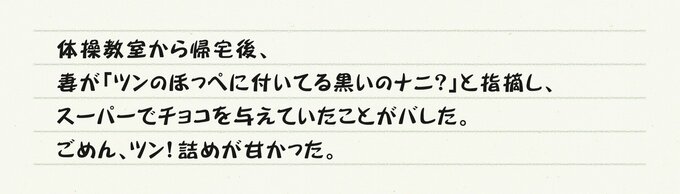 体操教室から帰宅後、
妻が「ツンのほっぺに付いてる黒いのナニ?」と指摘し、
スーパーでチョコを与えていたことがバレた。
ごめん、ツン!詰めが甘かった。